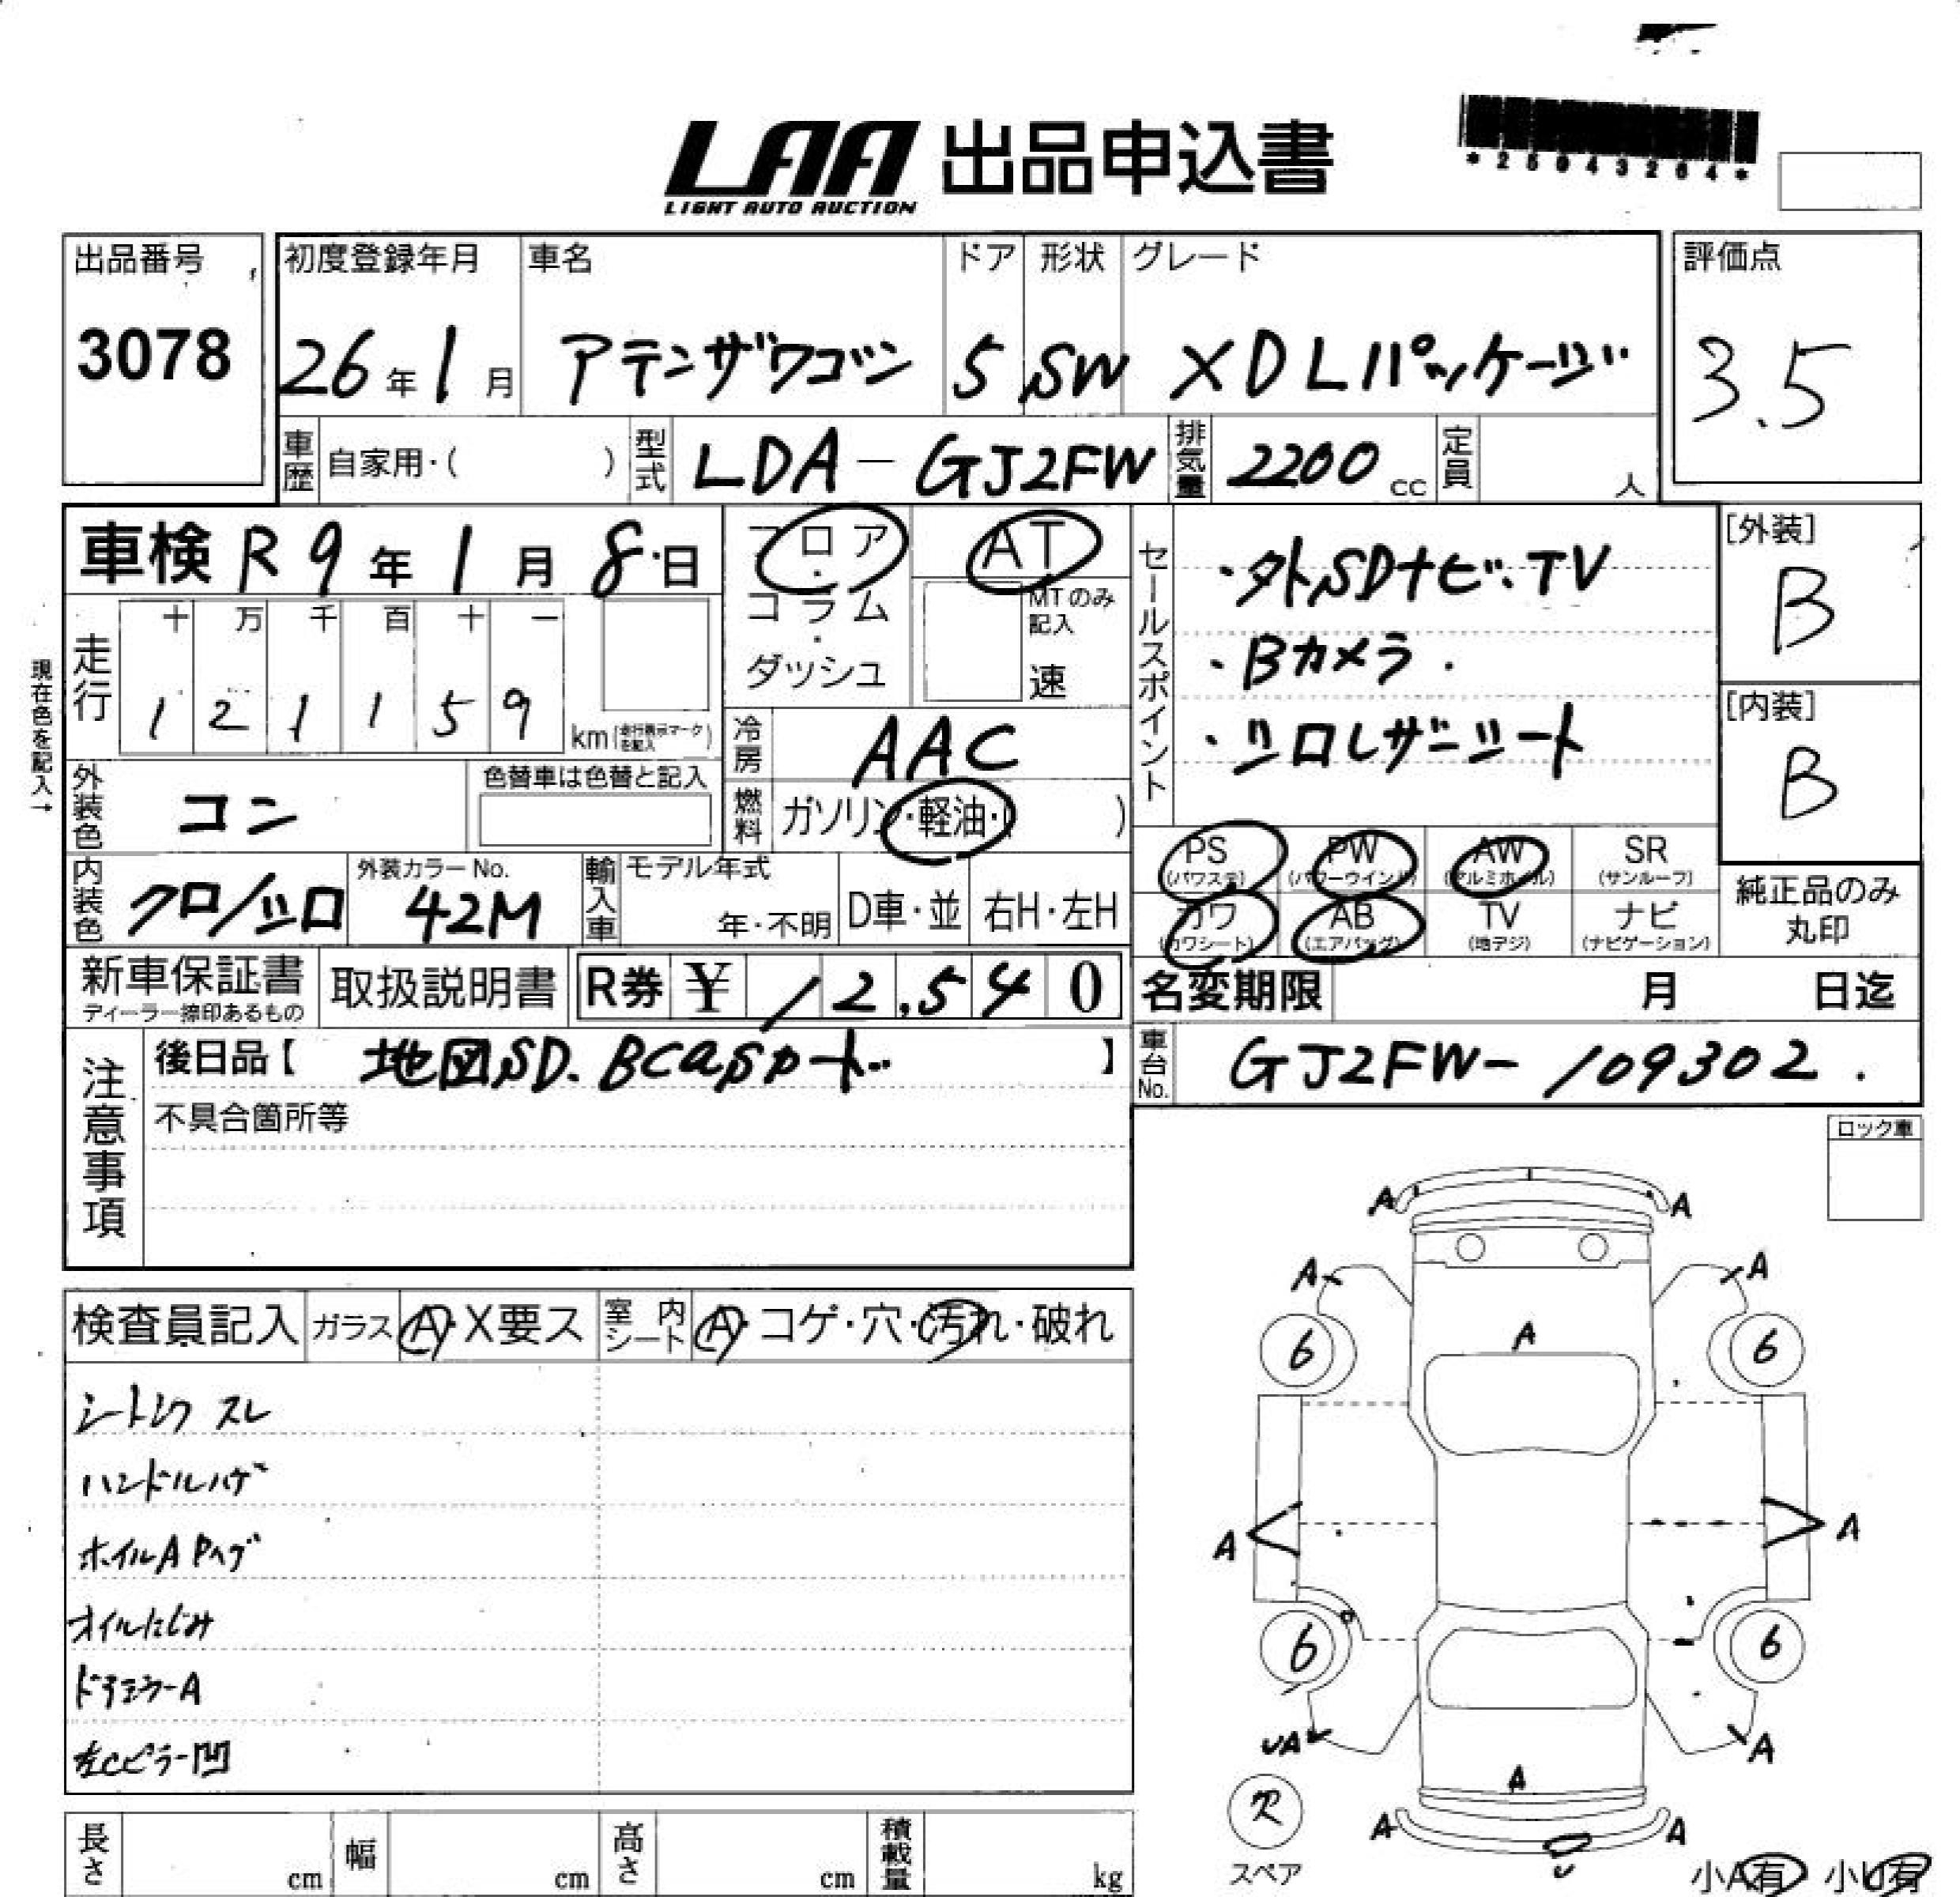 LAA 出品申込書
LIGHT AUTO AUCTION
出品番号 初度登録年月 車名 ドア 形状 グレード 評価点
3078 26年1月 アテンザワゴン 5 SW XD Lパッケージ 3.5
車歴 自家用・( ) 型式 LDA-GJ2FW 排気量 2200 cc 定員 人
車検 R9年1月8日 フロア・コラム・ダッシュ AT
MTのみ記入 速
セールスポイント
・外SDナビ.TV
・Bカメラ.
・シロレザーシート
[外装]
B
[内装]
B
現在色を記入→
走行 十 万 千 百 十 一
1 2 1 1 5 9 km(走行表示マークを記入)
冷房 AAC
外装色 コン 色替車は色替と記入
燃料 ガソリン・軽油・( )
PS (パワステ) PW (パワーウインド) AW (アルミホイル) SR (サンルーフ)
カワ (カワシート) AB (エアバッグ) TV (地デジ) ナビ (ナビゲーション)
純正品のみ丸印
内装色 クロ/シロ 外装カラーNo. 42M 輸入車 モデル年式 年・不明 D車・並 右H・左H
新車保証書 取扱説明書 R券 ¥ 12,540 名変期限 月 日迄
ディーラー捺印あるもの
注意事項
後日品【 地図SD.Bcasカード 】
車台No. GJ2FW-109302.
不具合箇所等
ロック車
検査員記入 ガラス A・X要ス 室内シート A・コゲ・穴・汚れ・破れ
ハンドルハゲ
オイルにじみ
ドアミラーA
左Cピラー凹
A A
A A
6 A 6
A A
6 6
UA A
A
A A
スペア
小A有 小U有
長さ cm 幅 cm 高さ cm 積載量 kg